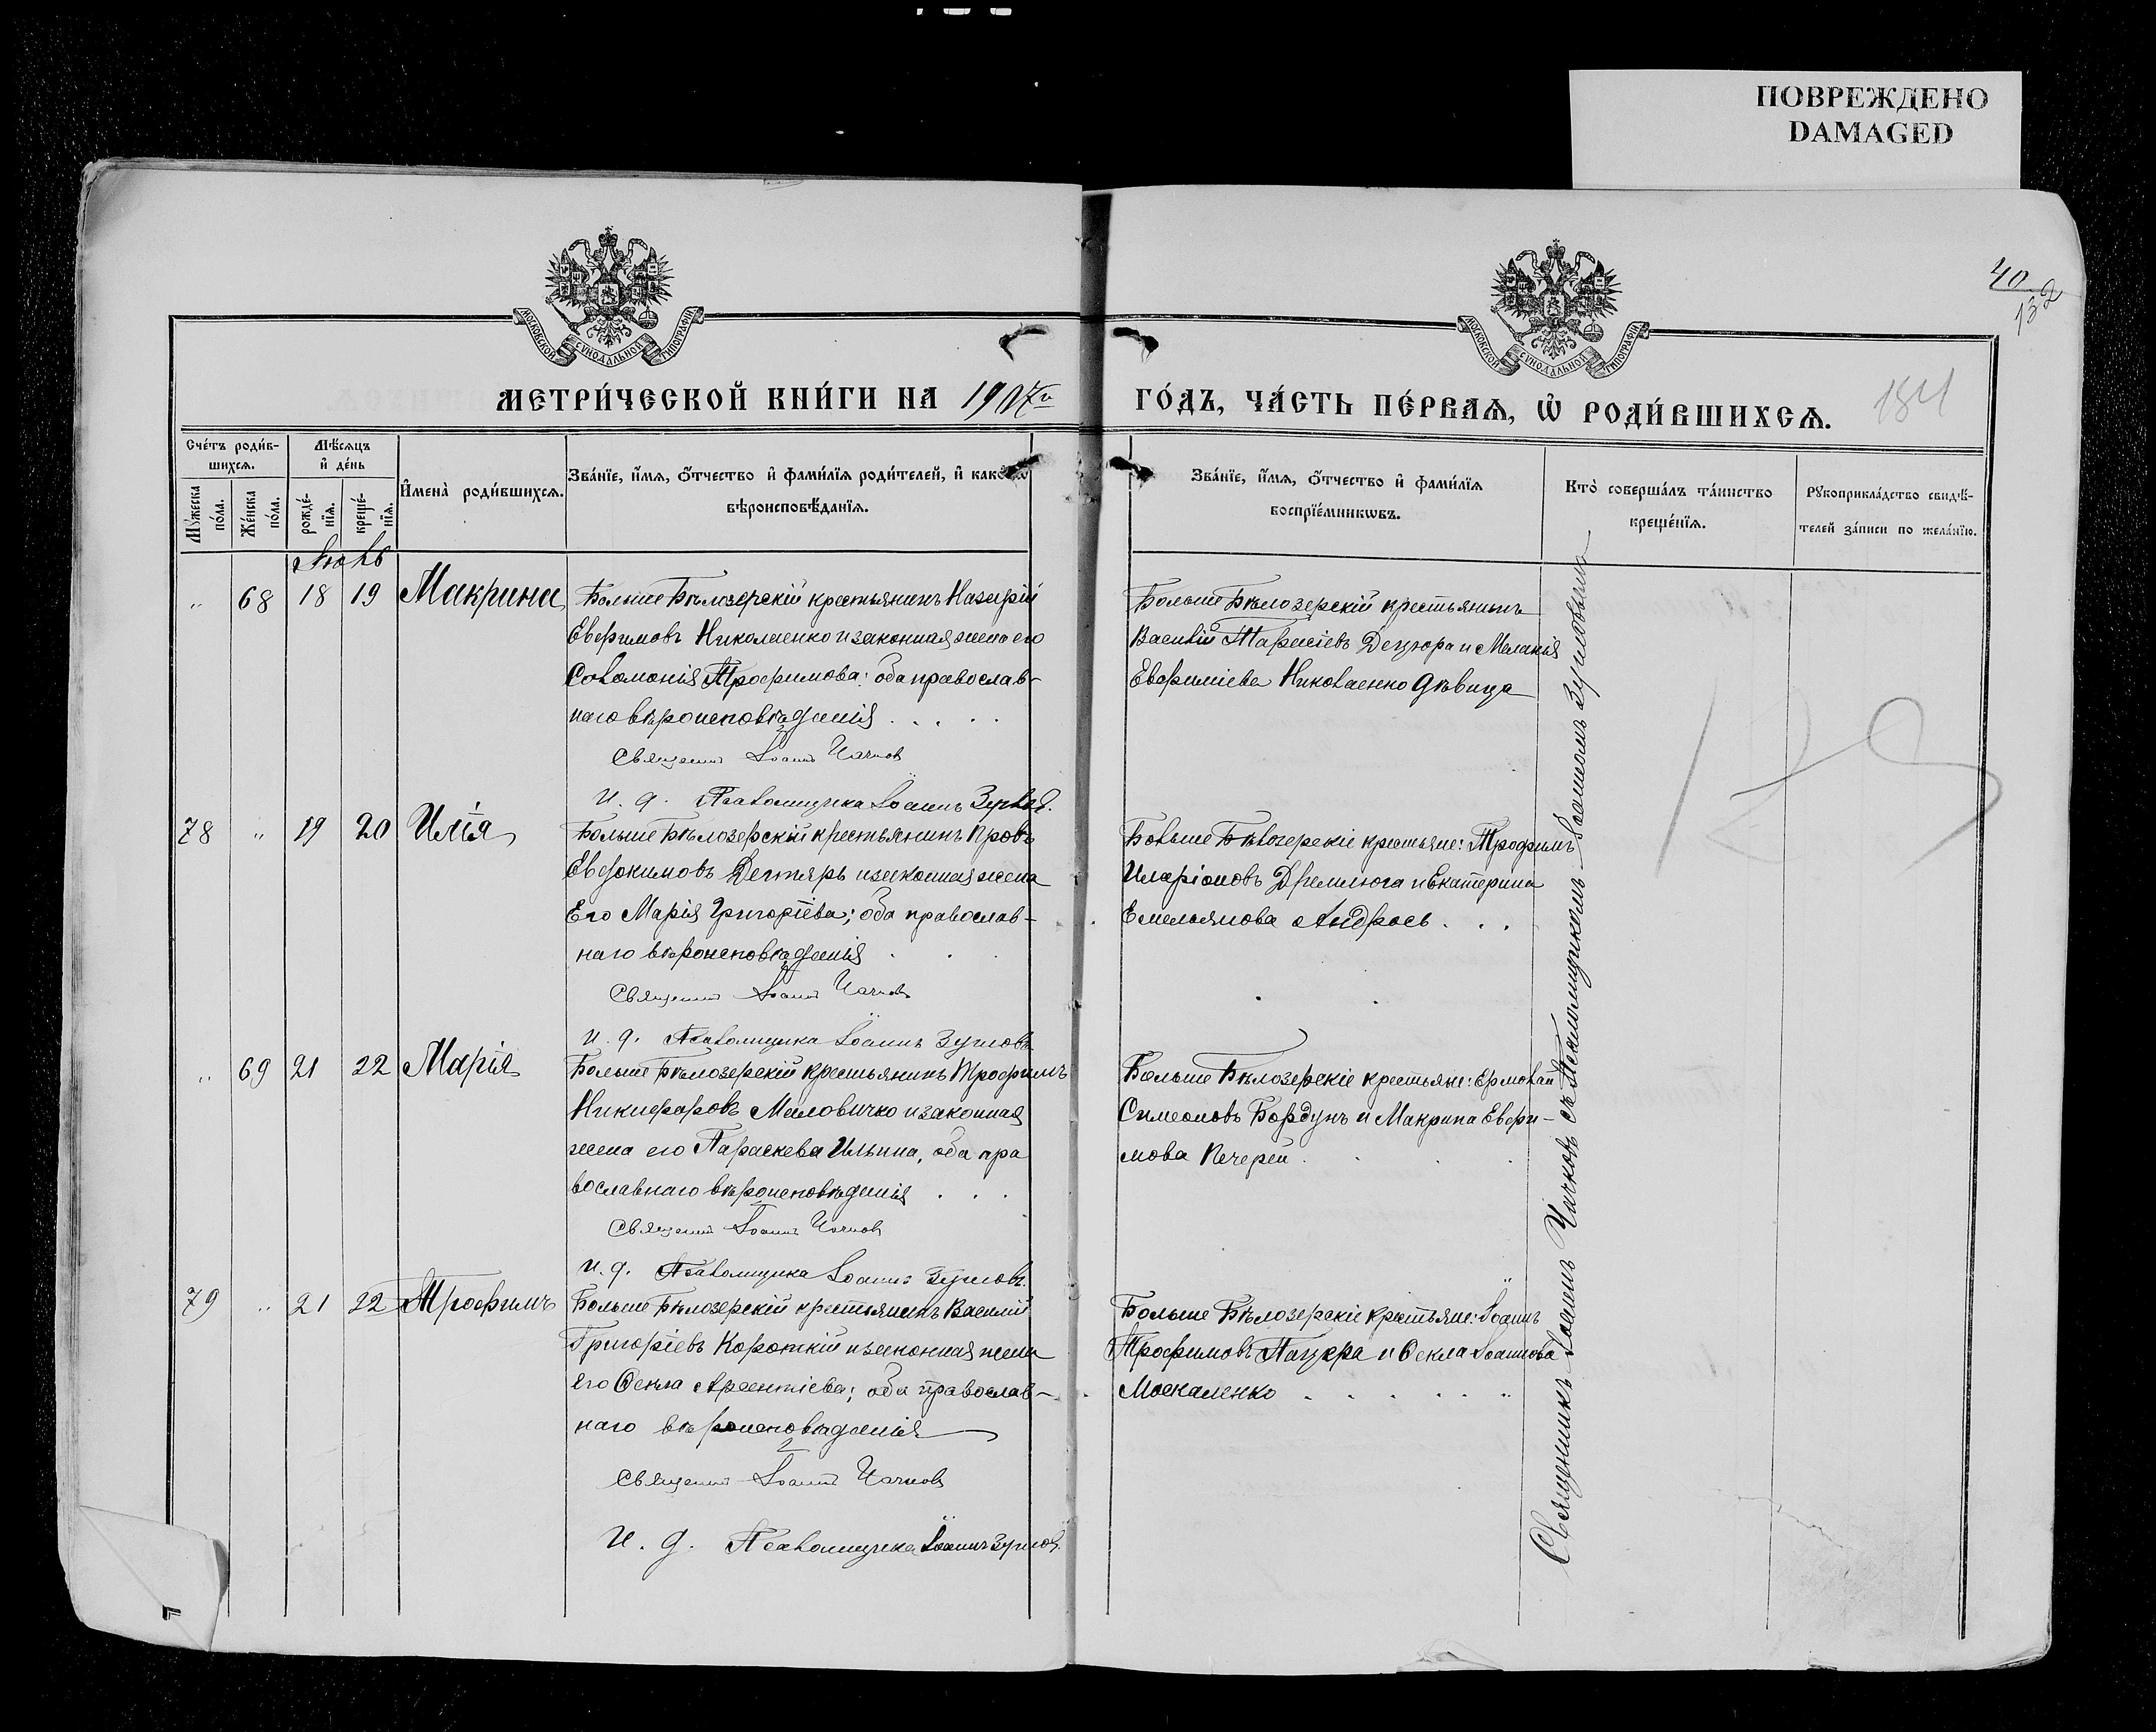 ПОВРЕЖДЕНО
DAMAGED
40
132
МОСКОВСКОЙ СѴНОДАЛЬНОЙ ТИПОГРАФІИ
МОСКОВСКОЙ СѴНОДАЛЬНОЙ ТИПОГРАФІИ
МЕТРИ́ЧЕСКОЙ КНИ́ГИ НА 1907й
ГО́ДЪ, ЧА́СТЬ ПЕ́РВАѦ, Ѡ РОДИ́ВШИХСѦ.
184
Сче́тъ роди́в-
шихсѧ.
Мѣ́сѧцъ
и де́нь
Мꙋ́жеска
по́ла.
Же́нска
по́ла.
рожде́-
нїѧ.
креще́-
нїѧ.
Имена̀ роди́вшихсѧ.
Зва́нїе, и́мѧ, ѻ́тчество и фами́лїѧ роди́телей, и како́гѡ
вѣроисповѣ́данїѧ.
Зва́нїе, и́мѧ, ѻ́тчество и фами́лїѧ
воспрїе́мникѡвъ.
Кто̀ соверша́лъ та́инство
креще́нїѧ.
Рꙋкоприкла́дство свидѣ́-
телей за́писи по жела́нїю.
Іюль
„ 68 18 19 Макрина
Больше Бѣлозерскій крестьянинъ Назарій
Евфимовъ Николаенко и законная жена его
Соломонія Трофимова: оба православ-
наго вѣроисповѣданія . . . .
Священникъ Іоаннъ Чачковъ
И. д. Псаломщика Іоаннъ Зуиловъ.
Больше Бѣлозерскій крестьянинъ
Василій Тарасіевъ Децюра и Меланія
Евфиміева Николаенко дѣвица
78 „ 19 20 Илія
Больше Бѣлозерскій крестьянинъ Провъ
Евдокимовъ Дегтярь и законная жена
Его Марія Григоріева; оба православ-
наго вѣроисповѣданія . . .
Священникъ Іоаннъ Чачковъ
И. д. Псаломщика Іоаннъ Зуиловъ
Больше Бѣлозерскіе крестьяне: Трофимъ
Иларіоновъ Дремлюга и Екатерина
Емельянова Андрось . . .
„ 69 21 22 Марія
Больше Бѣлозерскій крестьянинъ Трофимъ
Никифоровъ Маловичко и законная
жена его Параскева Ильина, оба пра
вославнаго вѣроисповѣданія . . .
Священникъ Іоаннъ Чачковъ
И. д. Псаломщика Іоаннъ Зуиловъ.
Больше Бѣлозерскіе крестьяне: Ермолай
Симеоновъ Бордунъ и Макрина Евфи-
мова Печерей . . . .
79 „ 21 22 Трофимъ
Больше Бѣлозерскій крестьянинъ Василій
Григоріевъ Короткій и законная жена
его Ѳекла Арсентіева; оба православ-
наго вѣроисповѣданія
Священникъ Іоаннъ Чачковъ
И. д. Псаломщика Іоаннъ Зуиловъ.
Больше Бѣлозерскіе крестьяне: Іоаннъ
Трофимовъ Пацера и Ѳекла Іоаннова
Москаленко . . . . . .
Священникъ Іоаннъ Чачковъ съ Псаломщикомъ Іоанномъ Зуиловымъ